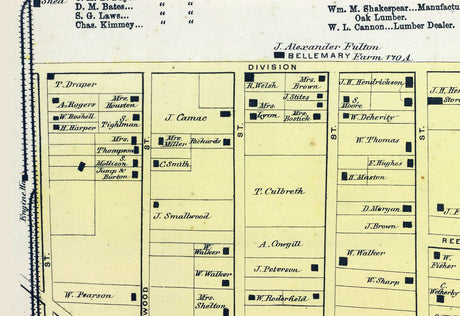 Shed
D. M. Bates... " "
S. G. Laws... " "
Chas. Kimmey... " "
Wm. M. Shakespear...Manufactu
Oak Lumber.
W. L. Cannon...Lumber Dealer.
J. Alexander Fulton
BELLEMARY Farm 170 A.
DIVISION
T. Draper
A. Rogers
Mrs. Houston
W. Roshell
H. Harper
S. Tightman
Mrs.
Thompson
S. Mollison
Jump & Burton
W. Pearson
Engine Ho
ST.
ST.
WOOD
J. Camac
Mrs. Miller
Richards
C. Smith
J. Smallwood
W. Walker
W. Walker
Mrs. Shelton
ST.
R. Welsh
Mrs. Brown
J. Stites
Mrs.
Lyon
Mrs. Bostick
T. Culbreth
A. Cowgill
J. Peterson
W. Roderfield
ST.
J. H. Hendrickson
S. Moore
W. Deherity
W. Thomas
E. Hughes
H. Maston
D. Morgan
J. Brown
W. Walker
W. Sharp
ST.
J. H. He
Stor
J. P
REE
W. Fisher
C. Wetherby